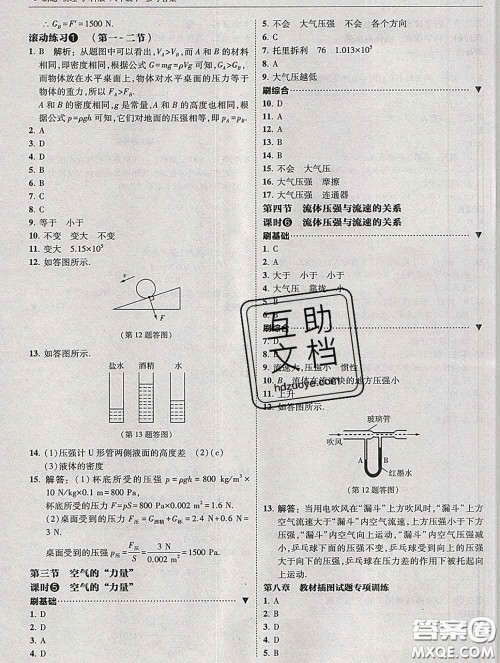 ∴ G_B = F' = 1500 N.
滚动练习❶ （第一－二节）
1. B 解析：从题图中可以看出,V_A>V_B,而 A 和 B 的材料
相同,即密度相同,根据公式 G=mg=ρVg 可知,G_A>G_B,
而物体放在水平桌面上,物体对水平桌面的压力等于
物体的重力,所以 F_A>F_B.
A 和 B 的密度相同,g 是常量,A 和 B 的高度也相同,根
据公式 p=ρgh 可知,它们对地面的压强相等,即 p_A=p_B.
2. A
3. A
4. D
5. A
6. B
7. B
8. C
9. 等于 小于
10. 不变 变大 不变
11. 变大 5.15×10⁵
12. 如答图所示.
（第 12 题答图）
13. 如答图所示.
盐水 酒精 水
（第 13 题答图）
14. (1)压强计 U 形管两侧液面的高度差 (2)(c)
(3)液体的密度
15. 解答：(1)杯底所受的压强 p=ρgh=
10 N/kg×0.1 m=800 Pa.
杯底所受的压力 F=pS=800 Pa×0.002 m²=1.6 N.
(2)桌面受到的压力 F压=G酒精+G杯=2.4 N+0.6 N=
3 N.
桌面受到的压强 p压=F压/S=3 N/0.002 m²=1500 Pa.
第三节 空气的“力量”
课时❺ 空气的“力量”
刷基础
1. C
2. D
3. D
4. A
5. 不会 大气压强 各个方向
6. C
7. 托里拆利 76 1.013×10⁵
8. A
9. 大气压越低
刷综合
10. D
11. A
12. D
13. A
14. B
15. 不会 大气压
16. 大气压强 摩擦
17. 大气压强 连通器
第四节 流体压强与流速的关系
课时❻ 流体压强与流速的关系
刷基础
1. C
2. A
3. 大于 小于 小于
4. 大气压 靠拢 小
5. B
刷综合
7. D
8. A
9. 流速大,压强小 惯性
10. B 流体在流速快的地方压强小
11. 上升
12. 如答图所示.
玻璃管
吹风
A B
红墨水
（第 12 题答图）
13. 解答：当用电吹风在“漏斗”上方吹风时,“漏斗”上方
空气流速大于“漏斗”内空气流速,上方压强小于“漏
斗”内压强,乒乓球上升;当用电吹风向“漏斗”内吹风
时,“漏斗”内空气向上运动,乒乓球上方空气流速小,
压强大,乒乓球下面的空气流速大,压强小,乒乓球受
到向下的压力大于向上的压力,故乒乓球不会下落.
第八章 教材插图试题专项训练
1. B
2. D
3. B
4. C
5. B
互助
文档
hdzuoye.com
答案圈
MXQE.COM